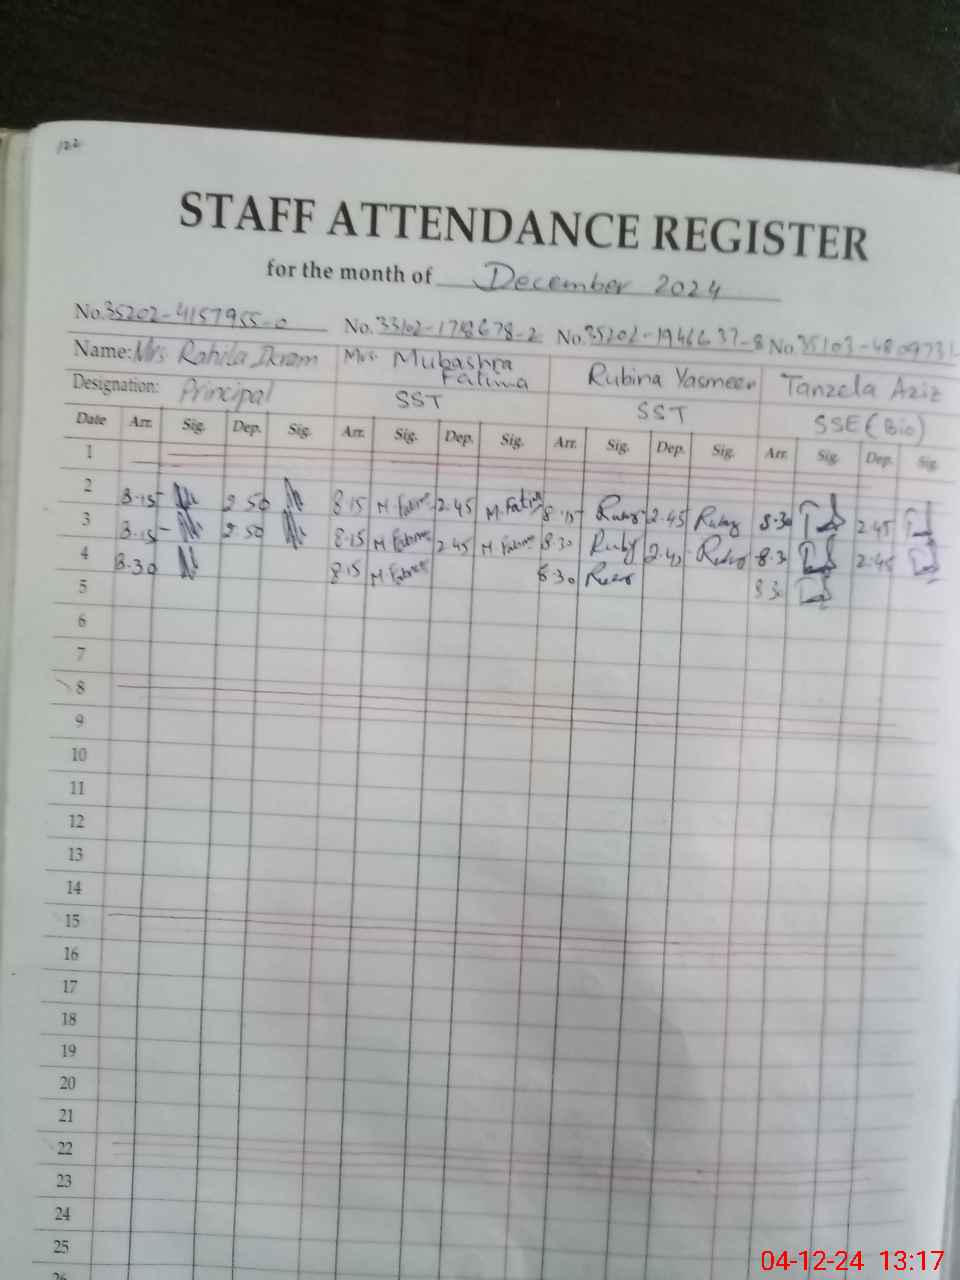 122
STAFF ATTENDANCE REGISTER
for the month of December 2024
No. 35202-4157955-0 No. 33102-1788678-2 No. 35202-1946637-8 No. 35103-4809731
Name: Mrs Rahila Ikram Mrs. Mubashra Fatima Rubina Yasmeen Tanzela Aziz
Designation: Principal SST SST SSE (Bio)
Date Arr. Sig. Dep. Sig. Arr. Sig. Dep. Sig. Arr. Sig. Dep. Sig. Arr. Sig. Dep. Sig.
1
2 8.15 2 50 8.15 M. Fatima 2.45 M. Fatima 8.15 Ruby 2.45 Ruby 8.30 2.45
3 8.15 2 50 8.15 M Fatima 2.45 M Fatima 8.30 Ruby 2.45 Ruby 8.3 2.45
4 8.30 8.15 M. Fatima 8.30 Ruby 8 3
5
6
7
8
9
10
11
12
13
14
15
16
17
18
19
20
21
22
23
24
25
26
04-12-24 13:17